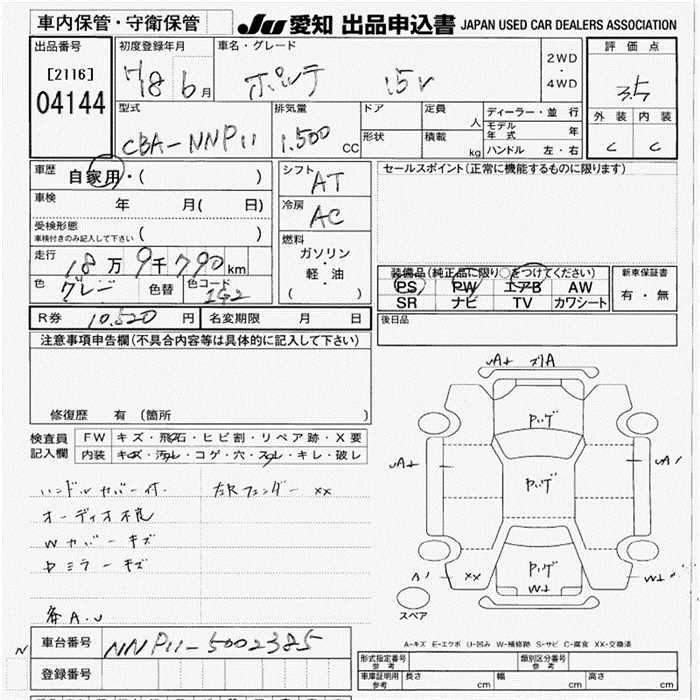 車内保管・守衛保管
JU 愛知 出品申込書 JAPAN USED CAR DEALERS ASSOCIATION
出品番号
[2116]
04144
初度登録年月
H8 6月
車名・グレード
ポルテ 15r
2WD
・
4WD
評価点
3.5
外装 内装
C C
型式
CBA-NNP11
排気量
1.500 CC
ドア
形状
定員 人
積載 kg
ディーラー・並行
モデル年式 年
ハンドル 左・右
車歴
自家用・( )
車検
年 月( 日)
受検形態
車検付きのみ記入して下さい ( )
走行
18万9千790km
色
グレー
色替
色コード
1G2
シフト
AT
冷房
AC
燃料
ガソリン
・
軽・油
( )
セールスポイント(正常に機能するものに限ります)
装備品(純正品に限り○をつけてください)
PS PW エアB AW
SR ナビ TV カワシート
新車保証書
有・無
R券 10.520 円
名変期限 月 日
後日品
注意事項申告欄(不具合内容等は具体的に記入して下さい)
修復歴 有 (箇所 )
検査員
記入欄
FW キズ・飛石・ヒビ割・リペア跡・X要
内装 キズ・汚れ・コゲ・穴・スレ・キレ・破レ
ハンドルカバー付. 左Rフェンダー xx
オーディオ不良
Wカバーキズ
Dミラーキズ
A.U
P.ハゲ
P.ハゲ
P.ハゲ
W
A'
xx
スペア
A-キズ E-エクボ U-凹み W-補修跡 S-サビ C-腐食 XX-交換済
N
車台番号 NNP11-5002385
登録番号
形式指定番号
参考
類別区分番号
参考
車庫証明用
参考
長さ cm 幅 cm 高さ cm